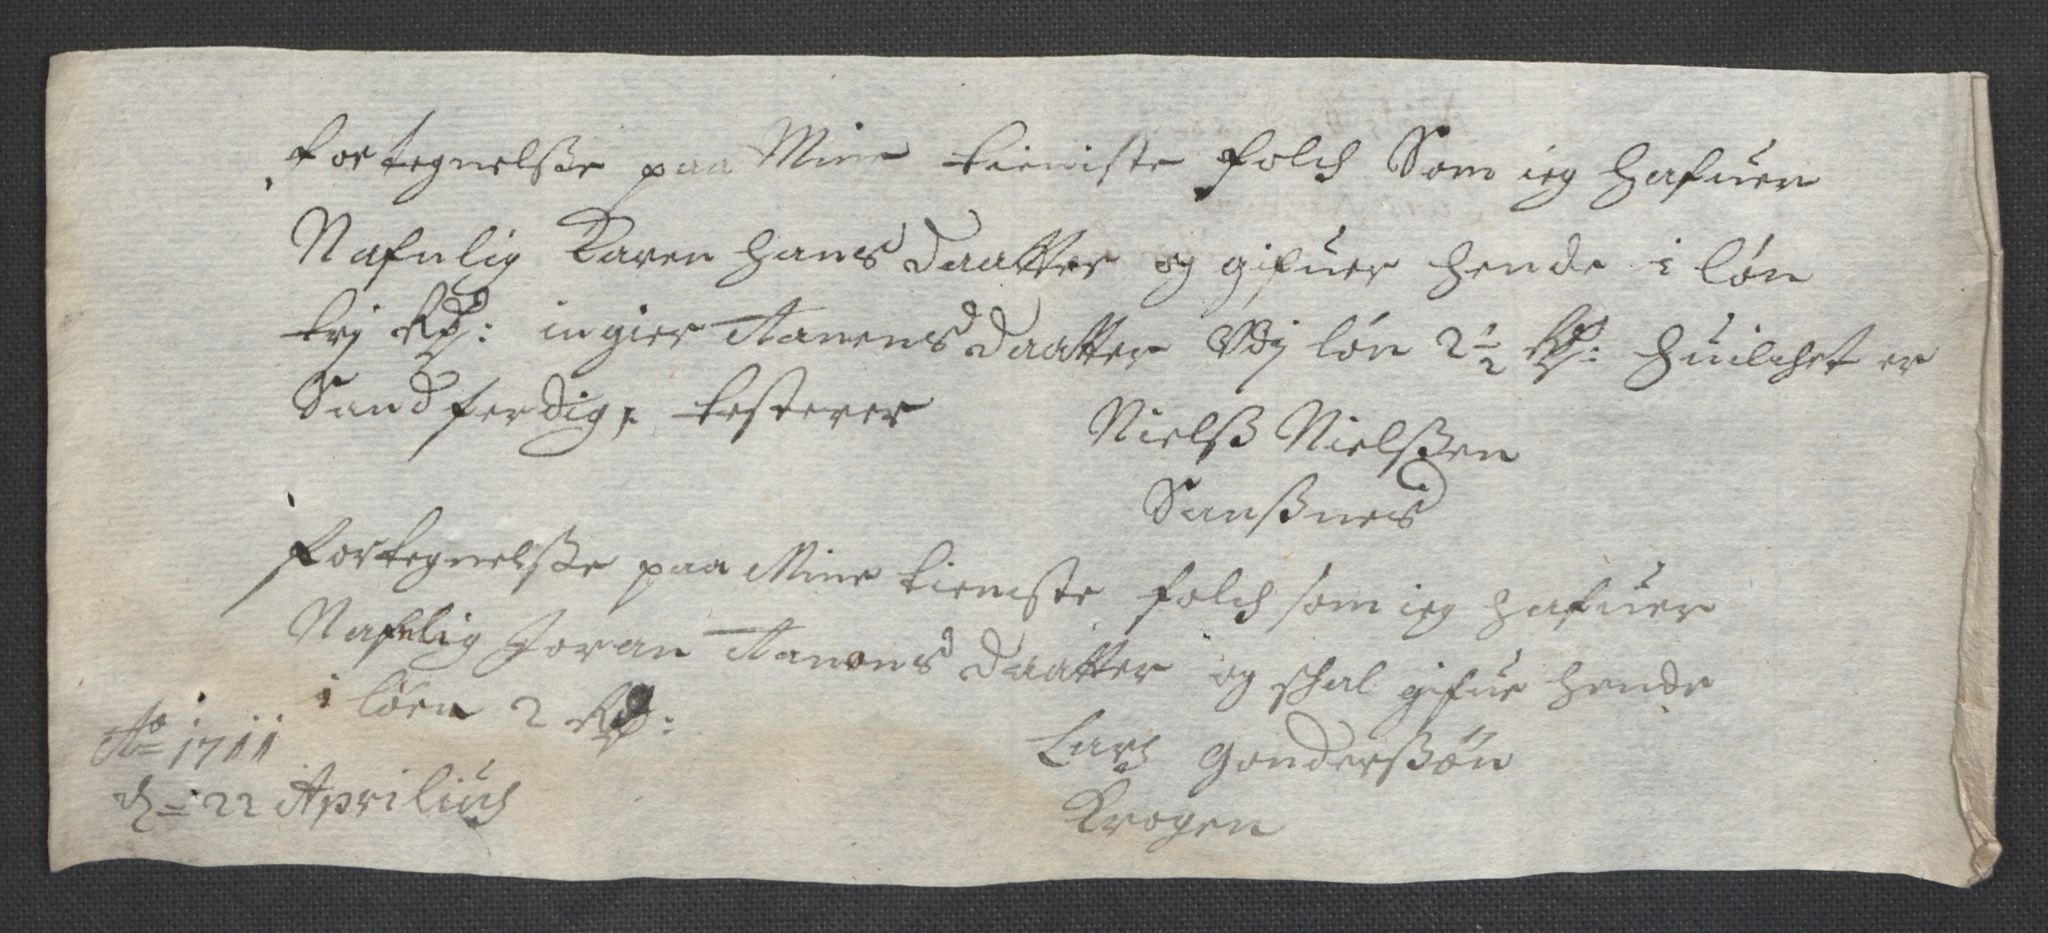 fortegnelsse paa Mine tieniste folch Som ieg hafuer
Nafnlig Karen Hans Daatter og gifuer hende i løn
trj Rdr: ingier Aamens Daatter Vdj løn 2½ Rdr: huilchet er
Sandferdig, testerer
Nielss Nielssen
Sanssnes
fortegnelsse paa Mine tieniste folch som ieg hafuer
Nafnlig Joran Aamons Daatter og schal gifue hende
i løen 2 Rdr:
Lars Gonderssøn
Krogen
Ao 1711
d = 22 Aprilius